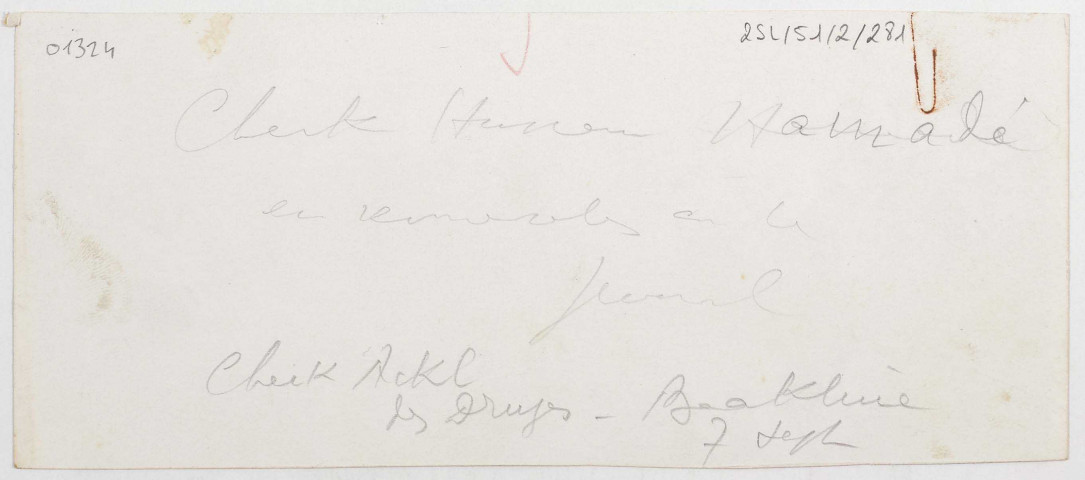 01324
2SL/51/2/281
Cheik Hussein Hamadé
en
Cheik Ackl
des Druzes - Baakline
7 sept